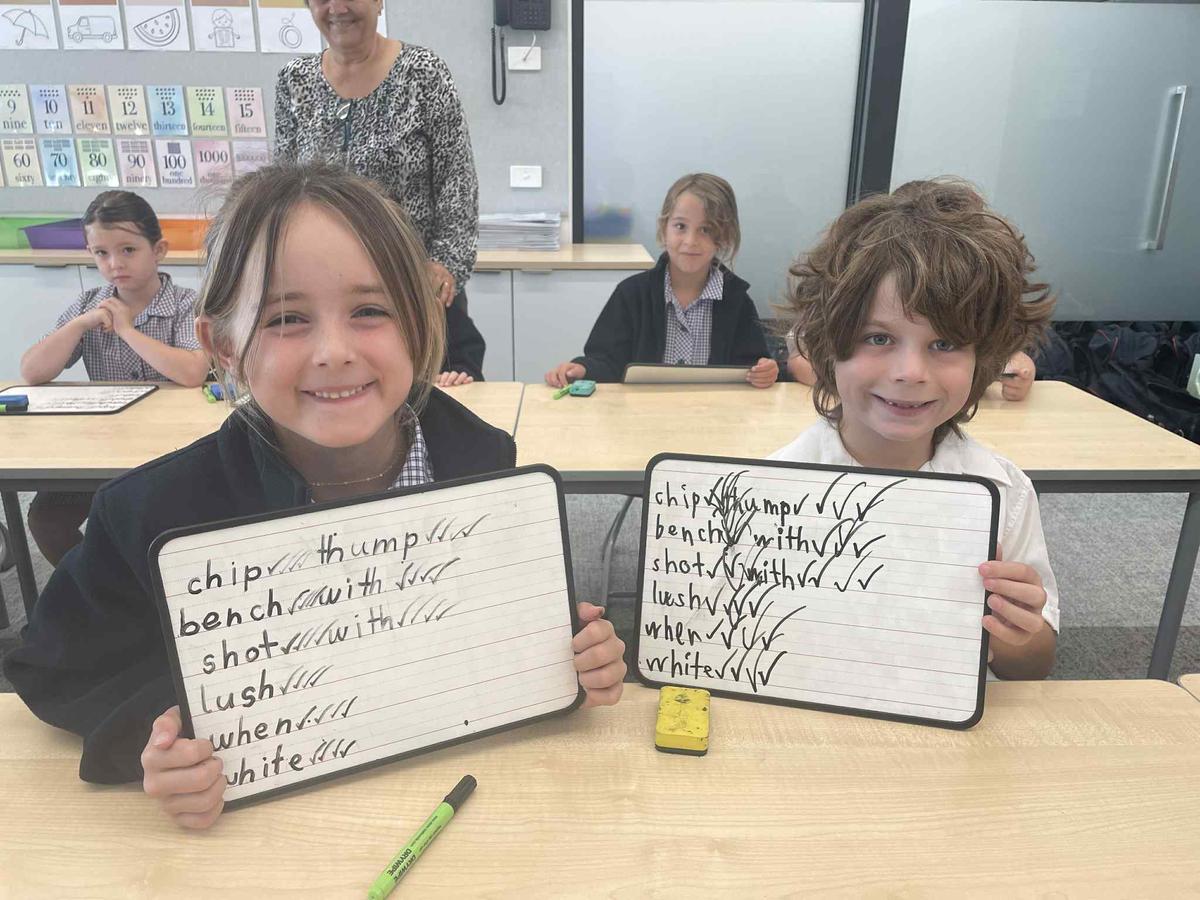 9 10 11 12 13 14 15
nine ten eleven twelve thirteen fourteen fifteen
60 70 80 90 100 1000
sixty seventy eighty ninety one hundred one thousand
chip✓✓✓ thump✓✓✓✓
bench✓✓✓✓with✓✓✓✓
shot✓✓✓✓with✓✓✓✓
lush✓✓✓✓
when✓✓✓✓
white✓✓✓✓
chip✓ thump✓ ✓✓✓
bench✓ with✓✓✓✓
shot✓✓ with✓✓✓✓
lush✓✓✓✓
when✓✓✓✓
white✓✓✓✓
DRYWIPE